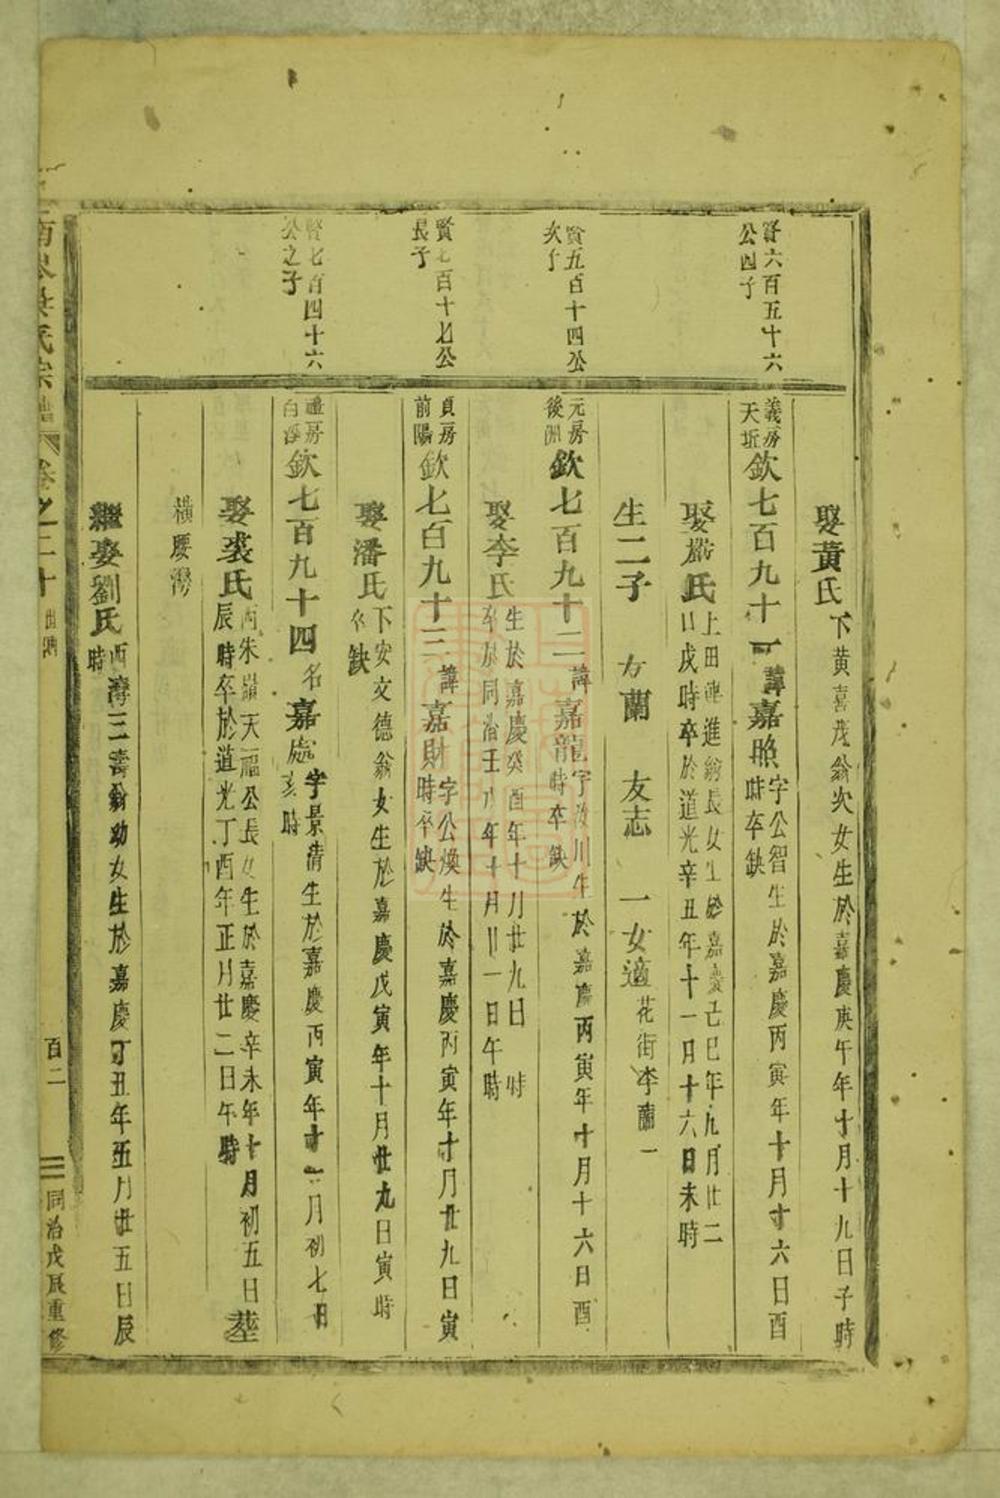 賢六百五十六
公四子
賢五百十四公
次子
賢七百十七公
長子
賢七百四十六
公之子
娶黃氏 下黃喜茂翁次女生於嘉慶庚午年十月十九日子時
義房
天坵
欽七百九十一 諱嘉照 字公智生於嘉慶丙寅年十月十六日酉
時卒缺
娶嚴氏 上田 進翁長女生於嘉慶己巳年九月廿二
日戌時卒於道光辛丑年十一月十六日未時
生二子 方蘭 友志 一女適 花街李蘭一
元房
後洲
欽七百九十二 諱嘉龍 字汝川生於嘉慶丙寅年十月十六日酉
時卒缺
娶李氏 生於嘉慶癸酉年十月廿九日 時
卒於同治壬戌年十月卅一日午時
貞房
前陽
欽七百九十三 諱嘉財 字公煥生於嘉慶丙寅年十月廿九日寅
時卒缺
娶潘氏 下安文德翁女生於嘉慶戊寅年十月廿九日寅時
卒缺
禮房
白
欽七百九十四 名嘉處 字景清生於嘉慶丙寅年十一月初七日
亥時
娶裘氏 西朱嶺天福公長女生於嘉慶辛未年十月初五日
辰時卒於道光丁酉年正月廿二日午時 塟
橫腰灣
繼娶劉氏 西灣三壽翁幼女生於嘉慶丁丑年五月廿五日辰
時
南岑吳氏宗譜 卷之二十 百二 同治戊辰重修